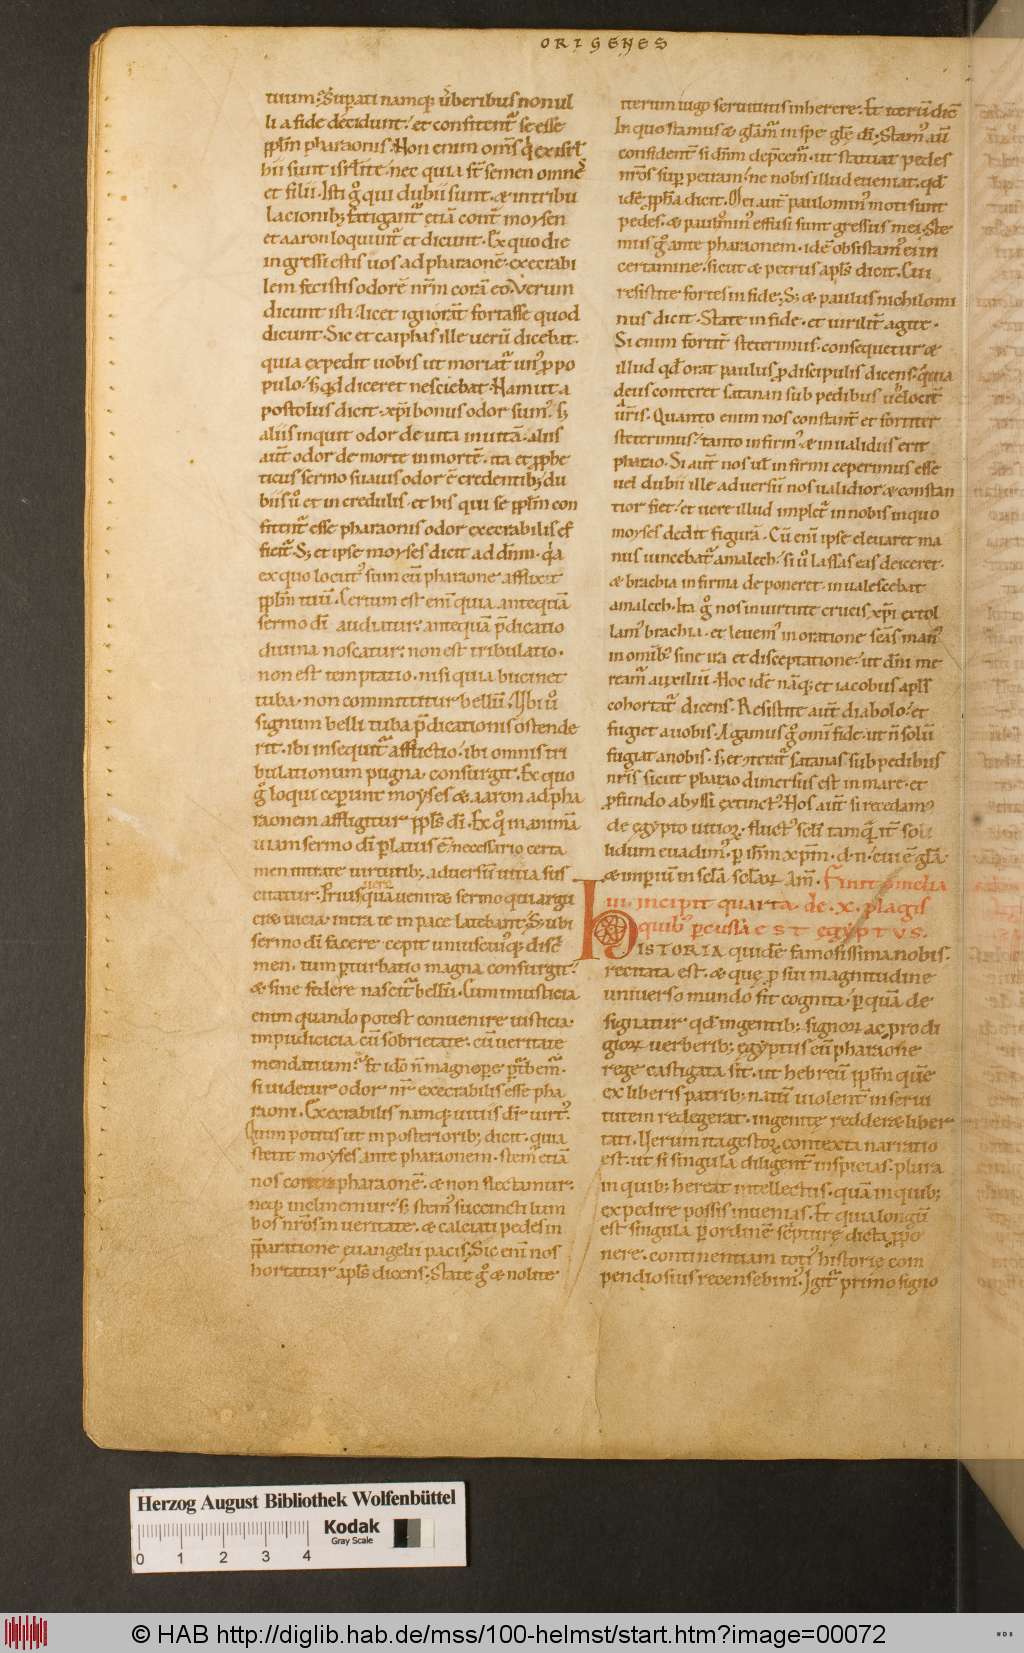 ORIGENES
tuum. Superati namq; uerberibus nonul
li a fide decidunt. et confitent̃ se esse
pp̃lm pharaonis. Non enim om̃s q̃ exisrl̃
hii sunt isrl̃ite. nec quia st̃ semen omnes
et filii. Isti g̊ qui dubii sunt. & in tribu
lacionib; fatigant̃ etiã cont̃ moysen
et aaron loquunt̃ et dicunt. Ex quo die
ingressi estis uos ad pharaonẽ. execrabi
lem fecistis odorẽ nr̃m corã eo. Verum
dicunt isti. licet ignorãt fortasse quod
dicunt. Sic et caiphas ille uerũ dicebat.
quia expedit uobis ut moriat̃ un᾽ p̱ po
pulo. s; qd̃ diceret nesciebat. Nam ut a
postolus dicit. xp̃i bonus odor sum᾽. s;
aliis inquit odor de uita in uitã. aliis
aut̃ odor de morte in mortẽ. ita et p̱phe
ticus sermo suauis odor ẽ credentib; du
biis ů et incredulis. et his qui se pp̃lm con
fitent̃ esse pharaonis odor execrabilis ef
ficit̃. S; et ipse moyses dicit ad dñm. q̃a
ex quo locut᾽ sum cũ pharaone afflixit
pp̃lm tuũ. Certum est eni᷒ quia antequã
sermo dĩ auditur. antequã p̃dicatio
diuina noscatur. non est tribulatio.
non est temptatio. nisi quia bucinet
tuba. non committitur bellũ. Ubi ů
signum belli tuba p̃dicationis ostende
rit. ibi insequit̃ afflictio. ibi omnis tri
bulationum pugna consurgit. Ex quo
g̊ loqui ceperunt moyses & aaron ad pha
raonem affligitur pp̃ls dĩ. Ex q̊ in animã
tuam sermo dĩ p̱latus ẽ. necessario certa
men intrate uirtutib; aduersũ uitia sus
citatur. Priusquã uenire sermo qui argu
eret uicia. intra te in pace latebant. S; ubi
sermo dĩ facere cepit uniuscuiq; discᷓ
men. tum p̱turbatio magna consurgit.
& sine federe nascit̃ bellũ. Cum iniusticia
enim quando potest conuenire iusticia.
impudicicia cũ sobrietate. cũ ueritate
mendatium? Et ido᷒ ñ magnope p̱t̃bem᾽.
si uidetur odor nr̃ execrabilis esse pha
raoni. Execrabilis namq; uitiis dr̃ uirt᾽.
Quin potius ut in posteriorib; dicit. quia
stetit moyses ante pharaonem. stem᾽ etiã
nos contra pharaonẽ. & non flectamur.
neq; inclinemur. s; stem᾽ succincti lum
bos nr̃os in ueritate. & calciati pedes in
pp̃aratione euangelii pacis. Sic eni᷒ nos
hortatur apl̃s dicens. State g̊ & nolite
iterum iugo seruitutis inherere. Et iterũ dic̃
In quo stamus & glãm᾽ in spe glẽ dĩ. Stam᾽ aũ
confident̃ si dñm dep̃cem᾽. ut statuat pedes
nr̃os sup̱ petram. ne nobis illud eueniat. qd̃
idẽ p̱ph̃a dicit. Mei aut̃ paulomin᾽ moti sunt
pedes. & paulomin᾽ effusi sunt gressus mei. Ste
mus g̊ ante pharaonem. idẽ obsistam᾽ ei in
certamine. sicut & petrus apl̃s dicit. Cui
resistite fortes in fide. S; & paulus nichilomi
nus dicit. State in fide. et uirilit̃ agite.
Si enim fortit̃ steterimus. consequetur &
illud qd̃ orat paulus p̱ discipulis dicens. quia
deus conteret satanan sub pedibus uelocit̃
ũris. Quanto enim nos constant̃ et fortiter
steterimus. tanto infirm᾽ & inualidus erit
pharao. Si aut̃ nos ul̃ infirmi ceperimus esse
uel dubii ille aduersũ nos ualidior & constan
tior fiet. et uere illud implet̃ in nobis in quo
moyses dedit figurã. Cũ eni᷒ ipse eleuaret ma
nus uincebat̃ amalech. si ů lassas eas deiceret.
& brachia infirma deponeret. inualescebat
amalech. Ita g̊ nos in uirtute crucis xp̃i extol
lam᾽ brachia. et leuem᾽ in oratione sc̃as man᾽
in omib᾽ sine ira et disceptatione. ut dñi me
ream᾽ auxiliũ. Hoc idẽ nãq; et iacobus apl̃s
cohortat̃ dicens. Resistite aut̃ diabolo. et
fugiet a uobis. Agamus g̊ omi᷒ fide. ut ñ solũ
fugiat a nobis. s; et terit̃ satanas sub pedibus
nr̃is sicut pharao dimersus est in mare. et
p̱fundo abyssi extinct᾽. Nos aut̃ si recedam᾽
de egypto uitioꝝ. fluct᾽ sc̃li tamq̃ it̃ soli
lidum euadim᾽. p̱ ihm̃ xp̃m. d. n. cui ẽ glã.
& imperiũ in sc̃la sc̃loꝝ am̃. Finit omelia
iii. incipit quarta. de .X. plagis
quib᾽ p̱cussa EST egyptus.
HISTORIA quidẽ famosissima nobis.
recitata est. & que p̱ sui magnitudine
uniuerso mundo sit cognita. p̱ quã de
signatur qd̃ ingentib; signoꝝ ac prodi
gioꝝ uerberib; egyptus cũ pharaone
rege castigata sit. ut hebreũ pp̃lm quẽ
ex liberis patrib; natũ uiolent̃ in serui
tutem redegerat. ingenite redderæ liber
tati. Uerum ita gestoꝝ contexta narratio
est. ut si singula diligent̃ inspicias. plura
in quib; hereat intellectus. quã in quib;
expedire possis inuenias. Et quia longũ
est singula p̱ ordinẽ scripture dicta p̱po
nere. continentiam toti᾽ historie com
pendiosius recensebim᾽. Igit̃ primo signo
Herzog August Bibliothek Wolfenbüttel
Kodak
Gray Scale
0 1 2 3 4
© HAB http://diglib.hab.de/mss/100-helmst/start.htm?image=00072